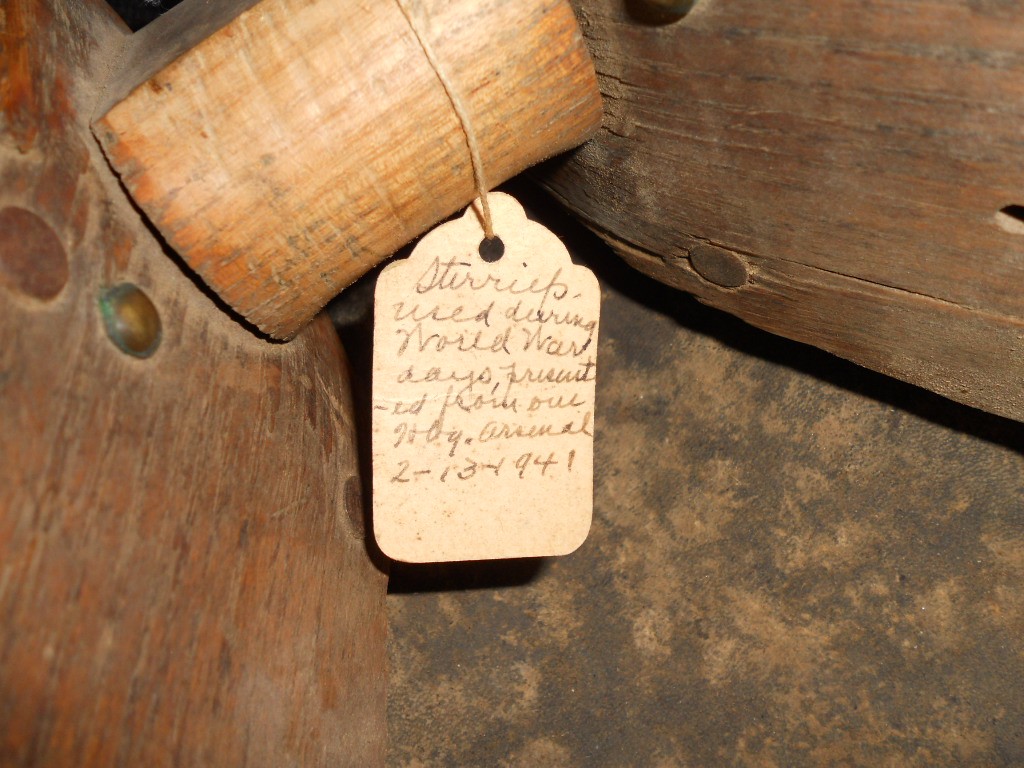 Stirrieps.
used during
World War
days, present
-ed from our
Hdq. Arsenal
2-13-1941